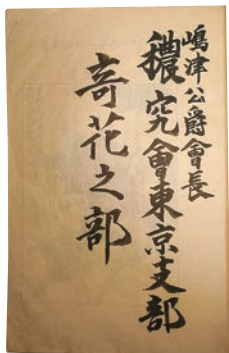 嶋津公爵會長
穠究會東京支部
奇花之部